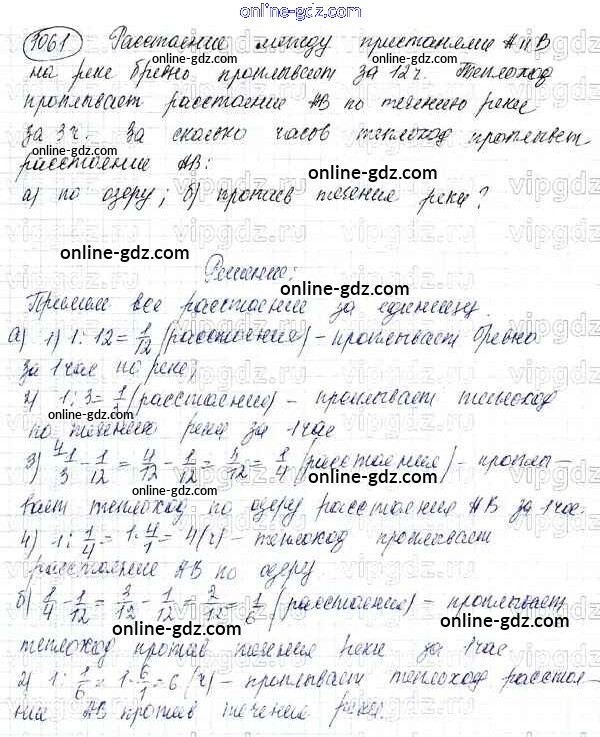 online-gdz.com
1061 Расстояние между пристанями А и В
на реке бревно проплывает за 12 ч. Теплоход
online-gdz.com
проплывает расстояние АВ по течению реки
за 3 ч. За сколько часов теплоход проплывет
расстояние АВ: online-gdz.com
а) по озеру; б) против течения реки?
online-gdz.com
Решение:
online-gdz.com
Примем все расстояние за единицу.
а) 1) 1 : 12 = 1/12 (расстояния) – проплывает бревно
online-gdz.com
за 1 час по реке;
2) 1 : 3 = 1/3 (расстояния) – проплывает теплоход
online-gdz.com
по течению реки за 1 час
3) 4 1/3 - 1/12 = 4/12 - 1/12 = 3/12 = 1/4 (расстояния) – проплы-
online-gdz.com
вает теплоход по озеру расстояния АВ за 1 час.
4) 1 : 1/4 = 1 · 4/1 = 4 (ч) – теплоход проплывает
online-gdz.com
расстояние АВ по озеру
б) 1/4 - 1/12 = 3/12 - 1/12 = 2/12 = 1/6 (расстояния) – проплывает
online-gdz.com
теплоход против течения реки за 1 час
2) 1 : 1/6 = 1 · 6/1 = 6 (ч) – проплывает теплоход расстоя-
online-gdz.com
ние АВ против течения реки.
online-gdz.com
vipgdz.ru